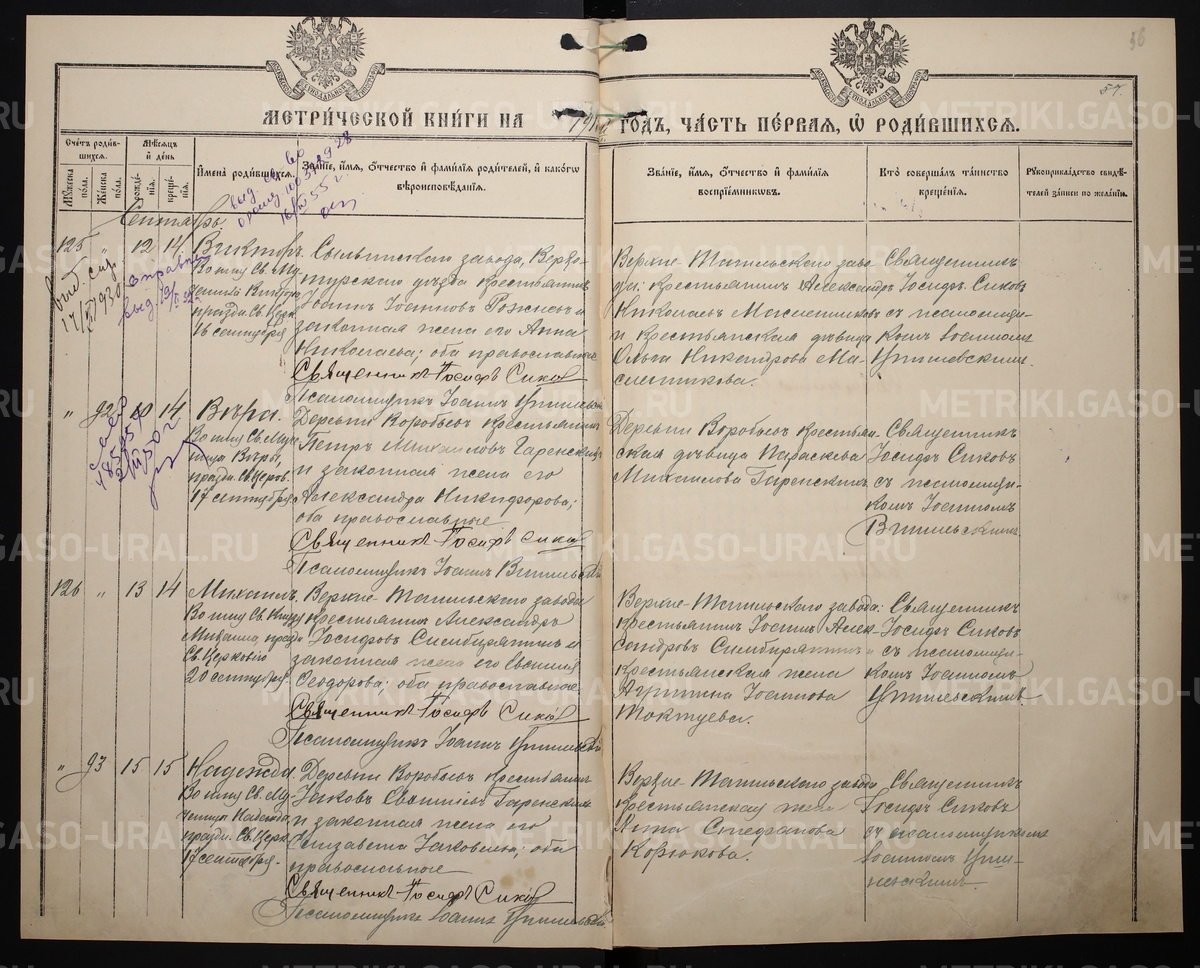 56
57.
МЕТРИ́ЧЕСКОЙ КНИ́ГИ НА 191 ГОДЪ, ЧА́СТЬ ПЕ́РВАЯ, Ѿ РОДИ́ВШИХСЯ.
Сче́тъ роди́вшихся.
Му́жеска по́ла.
Же́нска по́ла.
Мѣ́сяцъ и҆ де́нь
рожде́нія.
креще́нія.
И҆мена̀ роди́вшихся.
Зва́ніе, и҆́мя, ѻ҆́тчество и҆ фами́лія роди́телей, и҆ како́гѡ
вѣроисповѣ́данія.
Зва́ніе, и҆́мя, ѻ҆́тчество и҆ фами́лія
воспріе́мникѡвъ.
Кто̀ соверша́лъ та́инство
креще́нія.
Рꙋкоприкла́дство свидѣ́-
телей за́писи по жела́нїю.
Сентябрь.
125 " 12 14
Викторъ.
праздн. Св. Церк.
16 сентября
Сылвинскаго завода, Верхо-
турскаго уѣзда крестьянинъ
Іоаннъ Іоанновъ
законная жена его Анна
Николаева; оба православные
Священникъ Іосифъ Сиковъ
Псаломщикъ Іоаннъ
Верхне-Тагильскаго заво-
да: крестьянинъ Александръ
Николаевъ Масленниковъ
и крестьянская дѣвица
Ольга Никандрова Ма-
сленникова.
Священникъ
Іосифъ Сиковъ
съ псаломщи-
комъ Іоанномъ
" 92 10 14
Вѣра.
Во имя Св. Муч-
ницы Вѣры,
праздн. Св. Церков.
17 сентября
Деревни Воробьевъ крестьянинъ
Петръ Михаиловъ Гаренскихъ
и законная жена его
Александра Никифорова;
оба православные
Священникъ Іосифъ Сиковъ
Псаломщикъ Іоаннъ
Деревни Воробьевъ крестьян-
ская дѣвица Параскева
Михаилова Гаренскихъ
Священникъ
Іосифъ Сиковъ
съ псаломщи-
комъ Іоанномъ
126 " 13 14
Михаилъ.
Во имя Св. Князя
Михаила, праздн.
Св. Церковію
20 сентября
Верхне-Тагильскаго завода
крестьянинъ Александръ
Іосифовъ Симбирятинъ и
законная жена его Евгенія
Ѳеодорова; оба православные.
Священникъ Іосифъ Сиковъ
Псаломщикъ Іоаннъ
Верхне-Тагильскаго завода:
крестьянинъ Іоаннъ Алек-
сандровъ Симбирятинъ и
крестьянская жена
Агриппина Іоаннова
Токтуева.
Священникъ
Іосифъ Сиковъ
съ псаломщи-
комъ Іоанномъ
" 93 15 15
Надежда.
Во имя Св. Му-
ченицы Надежды,
праздн. Св. Церк.
17 сентября.
Деревни Воробьевъ крестьянинъ
Іаковъ Гаренскихъ
и законная жена его
Елизавета Іаковлева; оба
православные
Священникъ Іосифъ Сиковъ
Псаломщикъ Іоаннъ
Верхне-Тагильскаго завода
крестьянская жена
Анна Стефанова
Корюкова.
Священникъ
Іосифъ Сиковъ
съ псаломщикомъ
Іоанномъ
METRIKI.GASO-URAL.RU